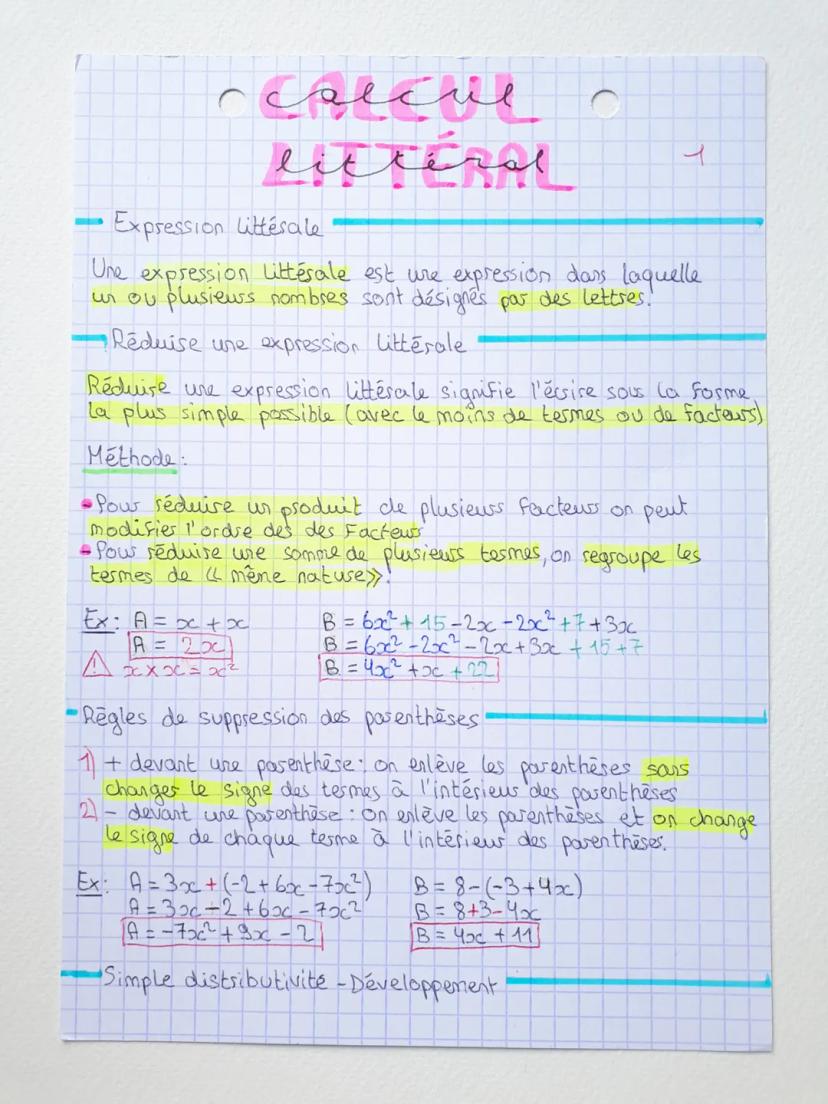 CALCUL
calcul
LITTÉRAL
littéral
1
Expression littérale
Une expression littérale est une expression dans laquelle
un ou plusieurs nombres sont désignés par des lettres.
Réduire une expression littérale
Réduire une expression littérale signifie l'écrire sous la forme
la plus simple possible (avec le moins de termes ou de facteurs)
Méthode :
• Pour réduire un produit de plusieurs facteurs on peut
modifier l'ordre des des facteurs
• Pour réduire une somme de plusieurs termes, on regroupe les
termes de « même nature ».
Ex : A = x + x B = 6x² + 15 - 2x - 2x² + 7 + 3x
A = 2x B = 6x² - 2x² - 2x + 3x + 15 + 7
⚠ x × x = x² B = 4x² + x + 22
Règles de suppression des parenthèses
1) + devant une parenthèse : on enlève les parenthèses sans
changer le signe des termes à l'intérieur des parenthèses
2) - devant une parenthèse : on enlève les parenthèses et on change
le signe de chaque terme à l'intérieur des parenthèses.
Ex : A = 3x + (-2 + 6x - 7x²) B = 8 - (-3 + 4x)
A = 3x - 2 + 6x - 7x² B = 8 + 3 - 4x
A = -7x² + 9x - 2 B = 4x + 11
Simple distributivité - Développement